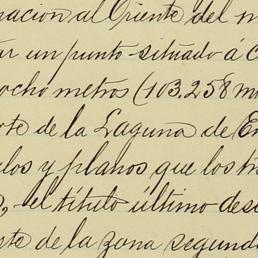 nacion al Oriente del m
tar un punto situado á c
ocho metros (103.258 m
rte de la Laguna de En
ulos y planos que los tr
el título último des
ste de la zona segund